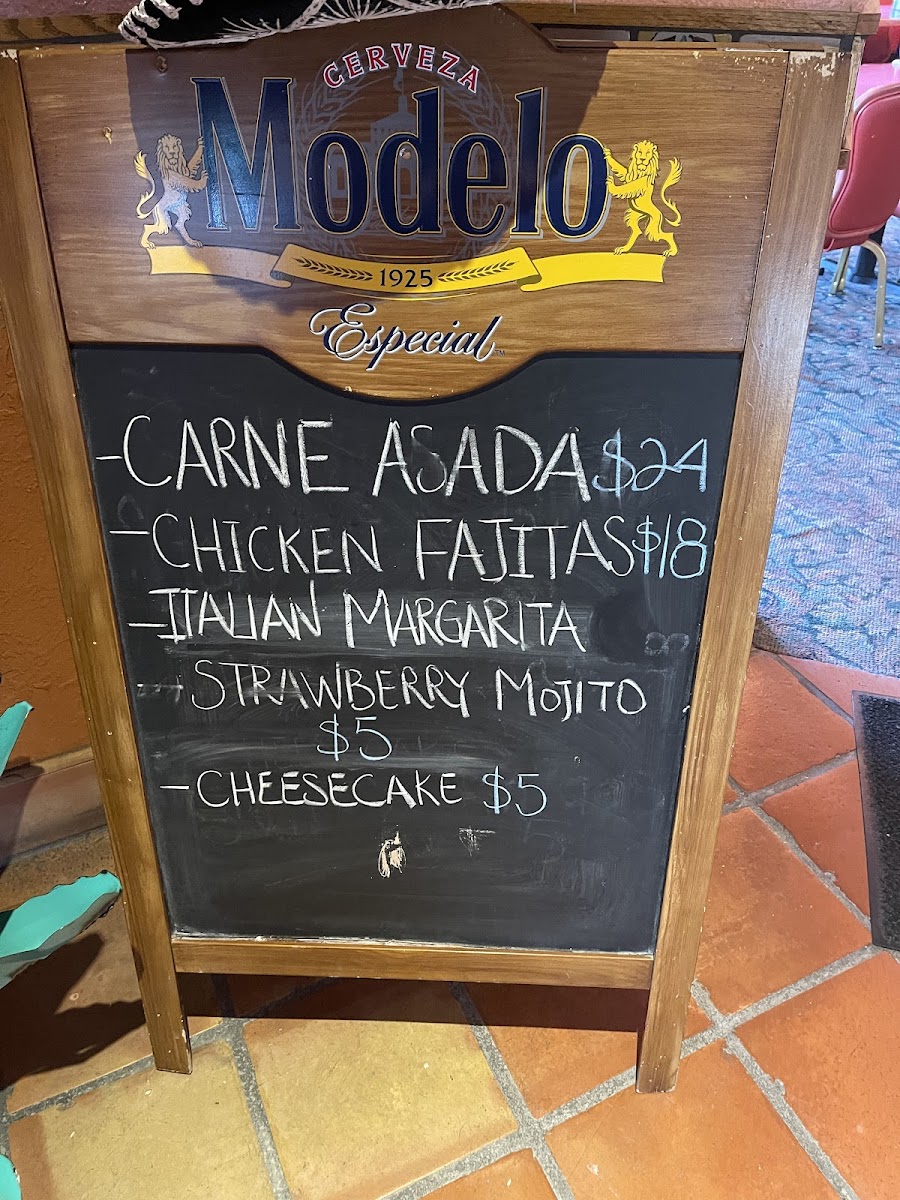 CERVEZA
Modelo
1925
Especial™
-CARNE ASADA $24
-CHICKEN FAJITAS $18
-ITALIAN MARGARITA
- STRAWBERRY MOJITO
$5
-CHEESECAKE $5